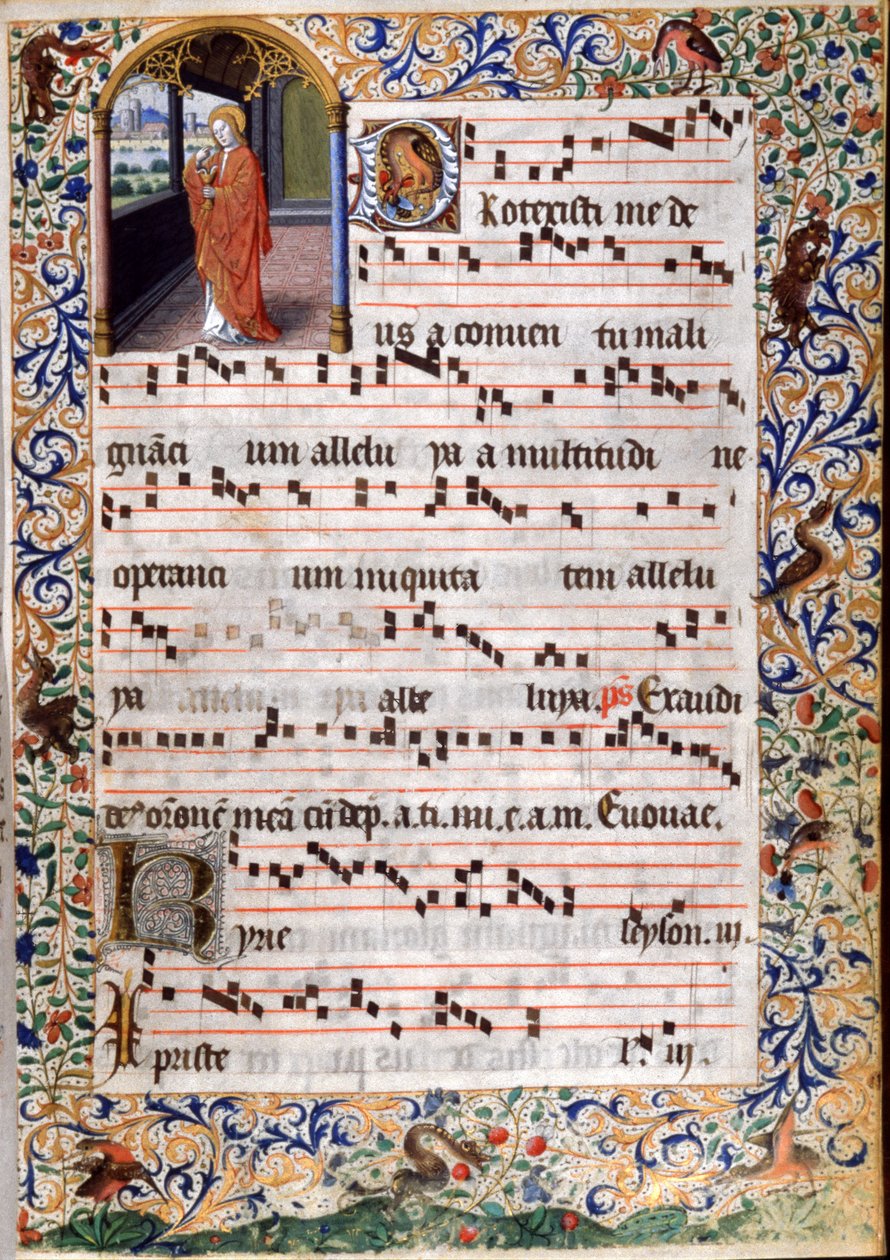 Protexisti me de
us a conuen tu mali
gnãci um allelu ya a multitudi ne
operanci um iniquita tem allelu
ya allelu ya alle luya. ps̃ Exaudi
de9 or̃onẽ meã cũ dep̃. a. ti. mi. e. a. m. Euouae.
Kyrie leyson. iij.
Xpriste k. iij.